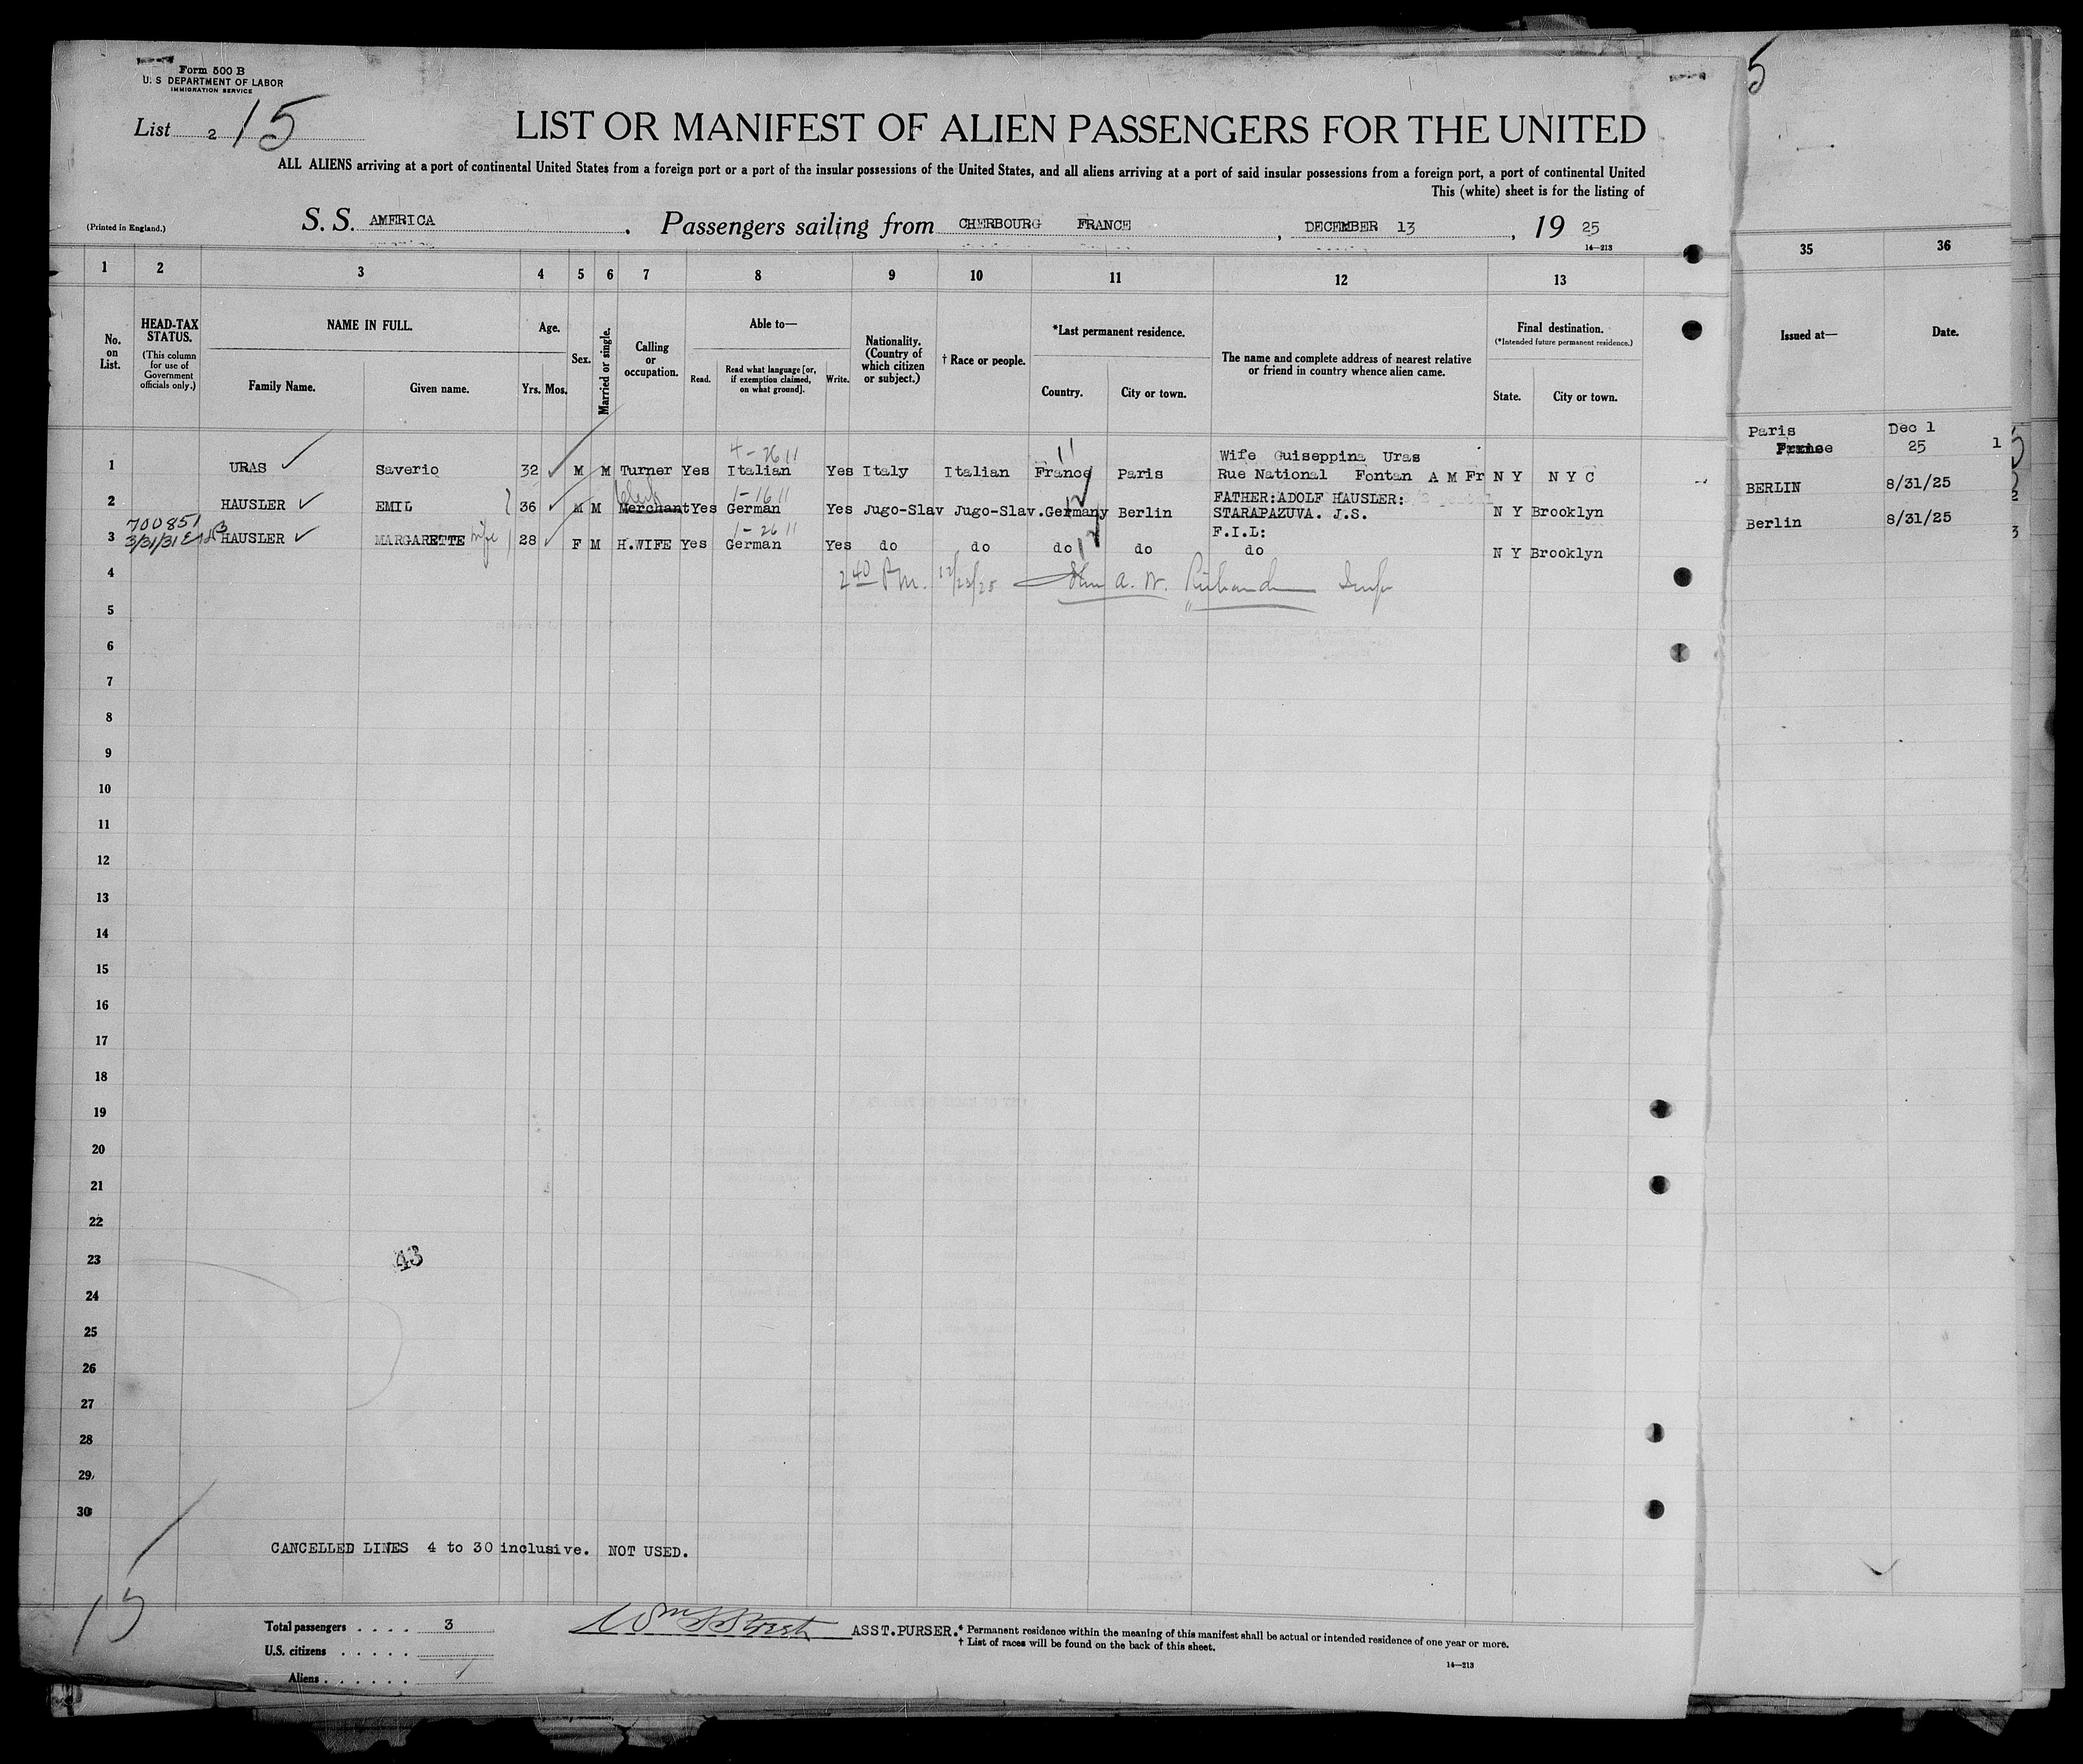 Form 500 B
U. S DEPARTMENT OF LABOR
IMMIGRATION SERVICE
List 2 15
LIST OR MANIFEST OF ALIEN PASSENGERS FOR THE UNITED
ALL ALIENS arriving at a port of continental United States from a foreign port or a port of the insular possessions of the United States, and all aliens arriving at a port of said insular possessions from a foreign port, a port of continental United
This (white) sheet is for the listing of
(Printed in England.)
S. S. AMERICA . Passengers sailing from CHERBOURG FRANCE , DECEMBER 13 , 19 25
14—213
5
1 2 3 4 5 6 7 8 9 10 11 12 13 35 36
No. on List.
HEAD-TAX STATUS.
(This column for use of Government officials only.)
NAME IN FULL.
Family Name. Given name.
Age.
Yrs. Mos.
Sex.
Married or single.
Calling or occupation.
Able to—
Read. Read what language [or, if exemption claimed, on what ground]. Write.
Nationality. (Country of which citizen or subject.)
† Race or people.
*Last permanent residence.
Country. City or town.
The name and complete address of nearest relative or friend in country whence alien came.
Final destination.
(*Intended future permanent residence.)
State. City or town.
Issued at— Date.
4-2611
Wife Guiseppina Uras
1 URAS Saverio 32 M M Turner Yes Italian Yes Italy Italian France Paris Rue National Fontan A M Fr N Y N Y C
Paris Dec 1
France 25 1
Clerk 1-1611
FATHER:ADOLF HAUSLER:
2 HAUSLER EMIL 36 M M Merchant Yes German Yes Jugo-Slav Jugo-Slav. Germany Berlin STARAPAZUVA. J.S. N Y Brooklyn
BERLIN 8/31/25 2
700851
3/31/31
1-2611
F.I.L:
3 HAUSLER MARGARETTE wife 28 F M H.WIFE Yes German Yes do do do do do N Y Brooklyn
Berlin 8/31/25 3
4 2 40 P.M. 12/22/25 John A. W. Richards Insp
5
6
7
8
9
10
11
12
13
14
15
16
17
18
19
20
21
22
23 43
24
25
26
27
28
29
30
CANCELLED LINES 4 to 30 inclusive. NOT USED.
15
Total passengers . . . . 3
U.S. citizens . . . . .
Aliens . . . . . .
ASST.PURSER.
* Permanent residence within the meaning of this manifest shall be actual or intended residence of one year or more.
† List of races will be found on the back of this sheet.
14—213